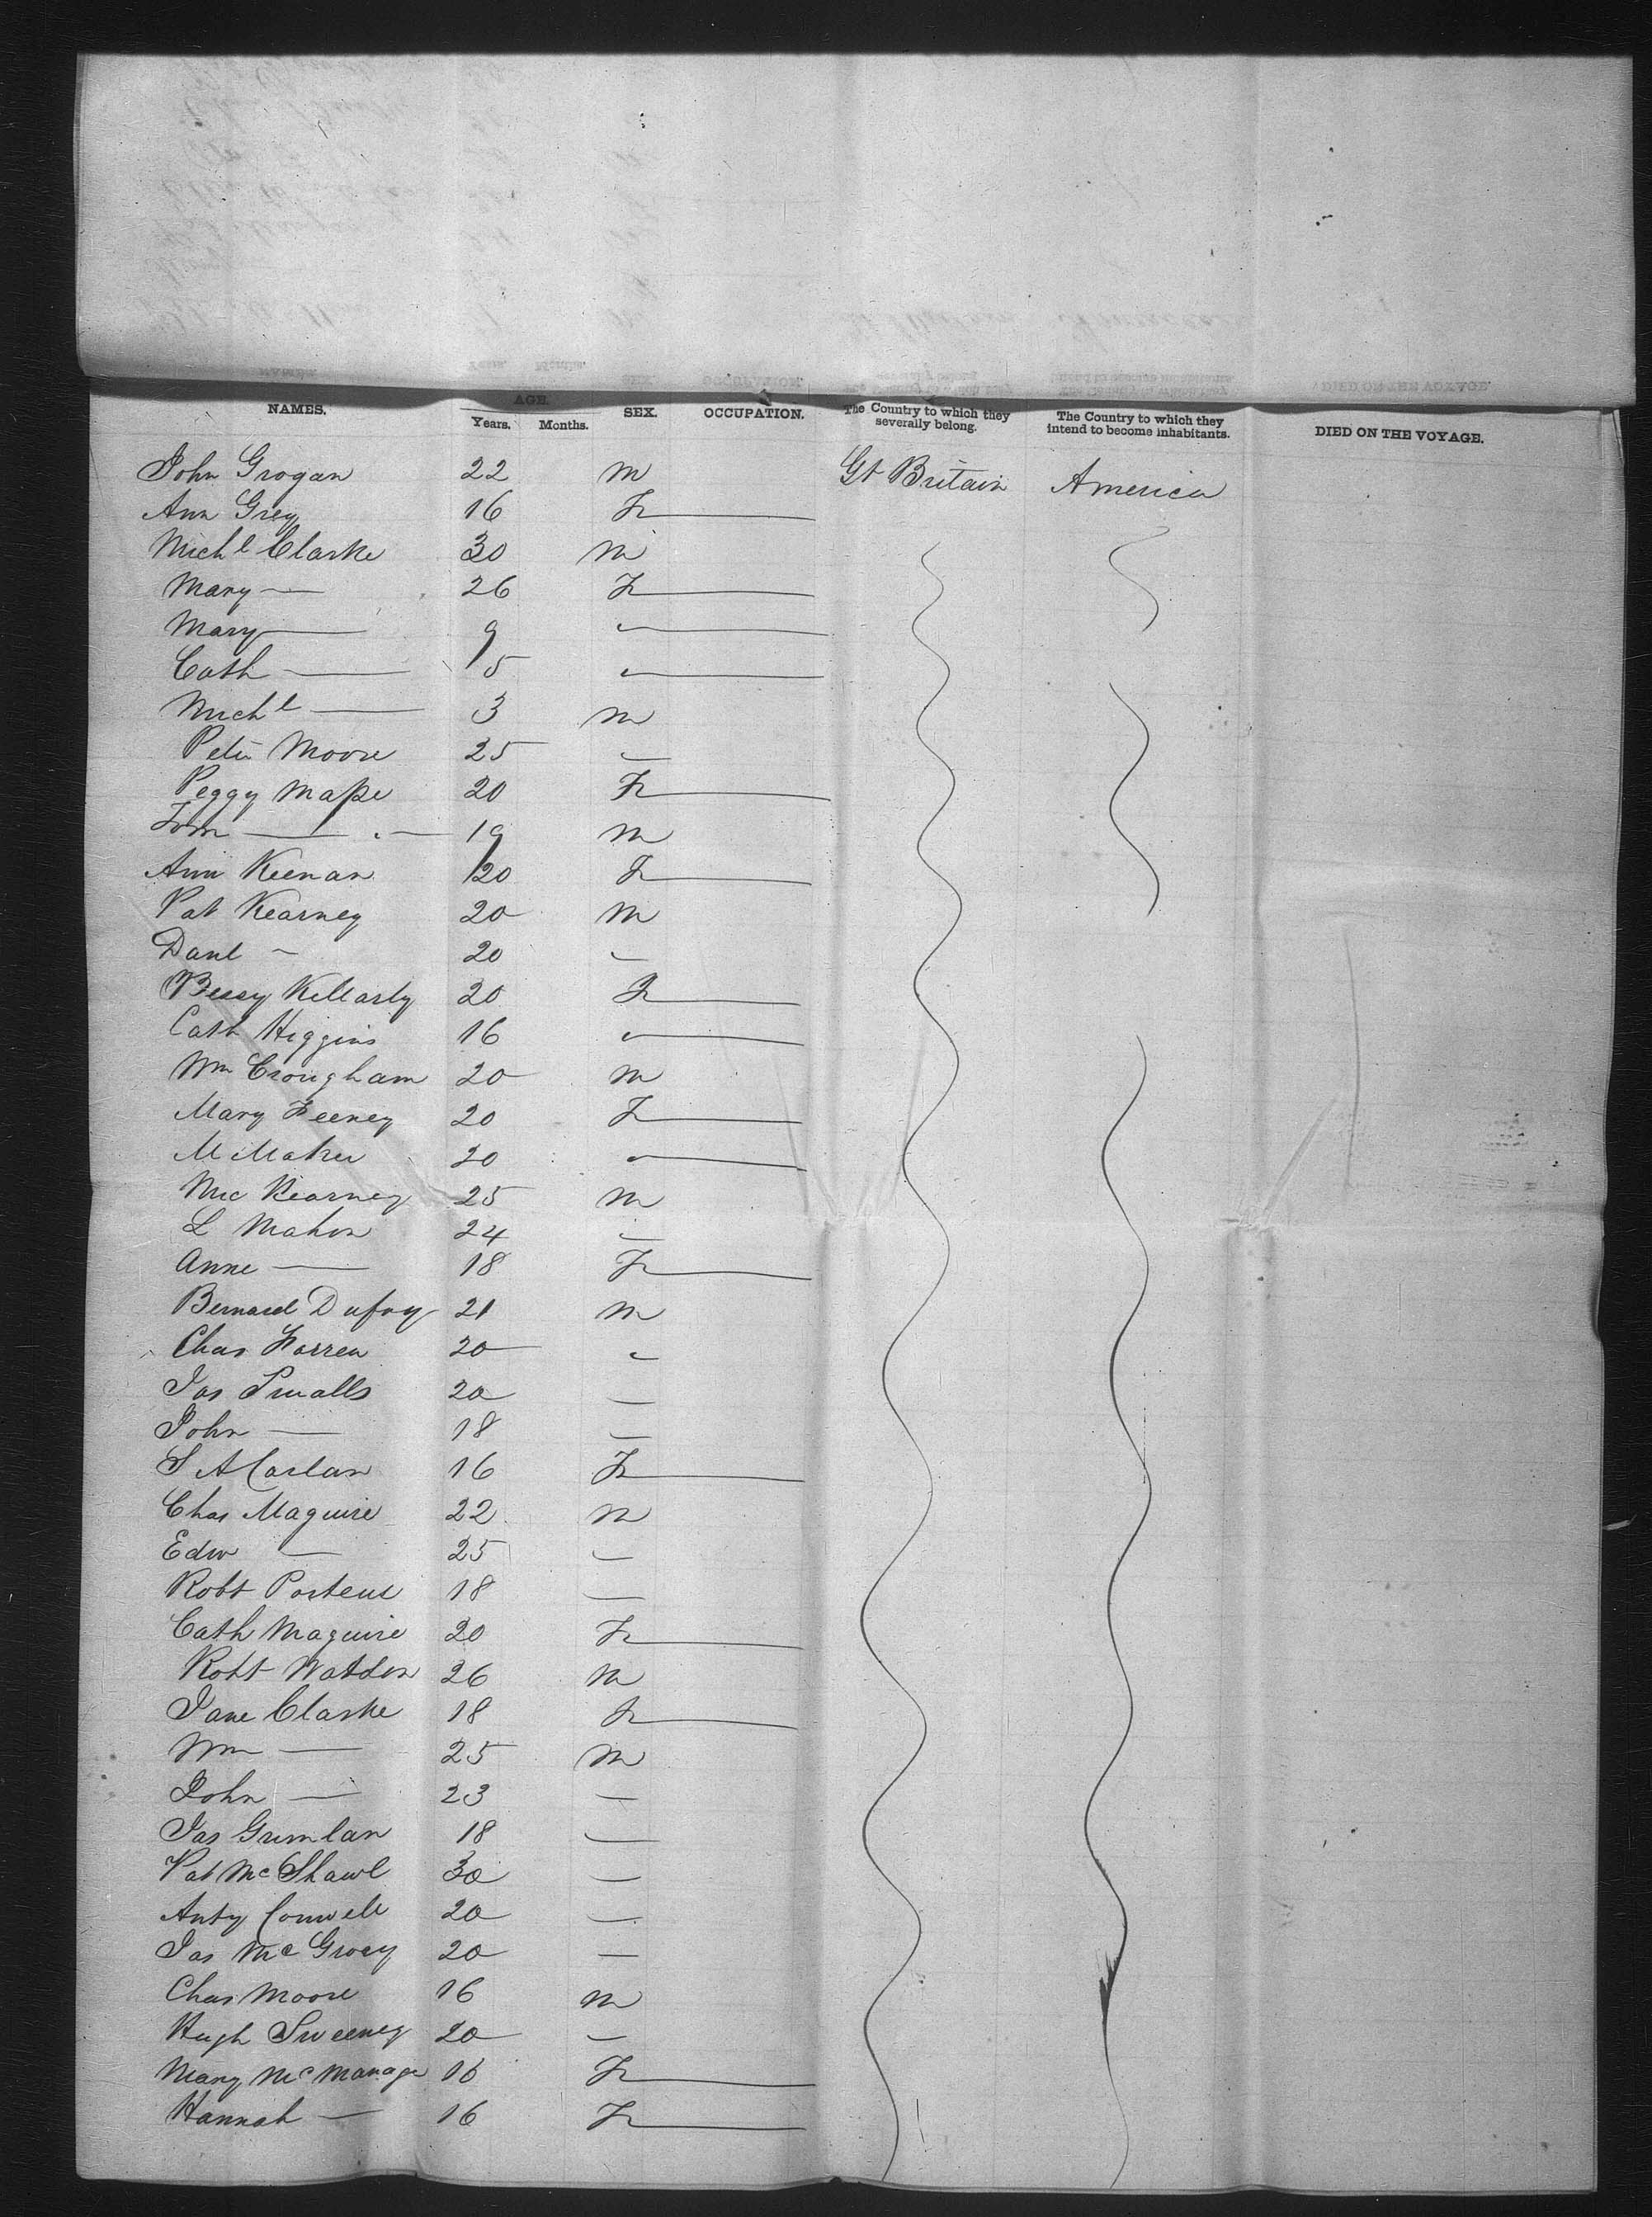 NAMES. AGE. Years. Months. SEX. OCCUPATION. The Country to which they severally belong. The Country to which they intend to become inhabitants. DIED ON THE VOYAGE.
John Grogan 22 m Gt Britain America
Ann Grey 16 F
Michl Clarke 30 m
Mary — 26 F
Mary — 9 "
Cath — 5 "
Michl — 3 m
Peter Moore 25 —
Peggy 20 F
Tom — 19 m
Ann Keenan 20 F
Pat Kearney 20 m
Danl — 20 —
Bessy 20 F
Cath Higgins 16 "
Wm Crougham 20 m
Mary Feeney 20 F
M Maher 20 "
Mic Kearney 25 m
L Mahon 24 —
Anne — 18 F
Bernard Dufoy 21 m
Chas Farren 20 "
Jas Smalls 20 —
John — 18 —
S A Carlan 16 F
Chas Maguire 22 m
Edw — 25 —
Robt Porteus 18 —
Cath Maguire 20 F
Robt Watson 26 m
Jane Clarke 18 F
Wm — 25 m
John — 23 —
Jas 18 —
Pat Mc Shawl 30 —
Anty Conwell 20 —
Jas Mc 20 —
Chas Moore 16 m
Hugh Sweeney 20 —
Mary Mc Manage 16 F
Hannah — 16 F